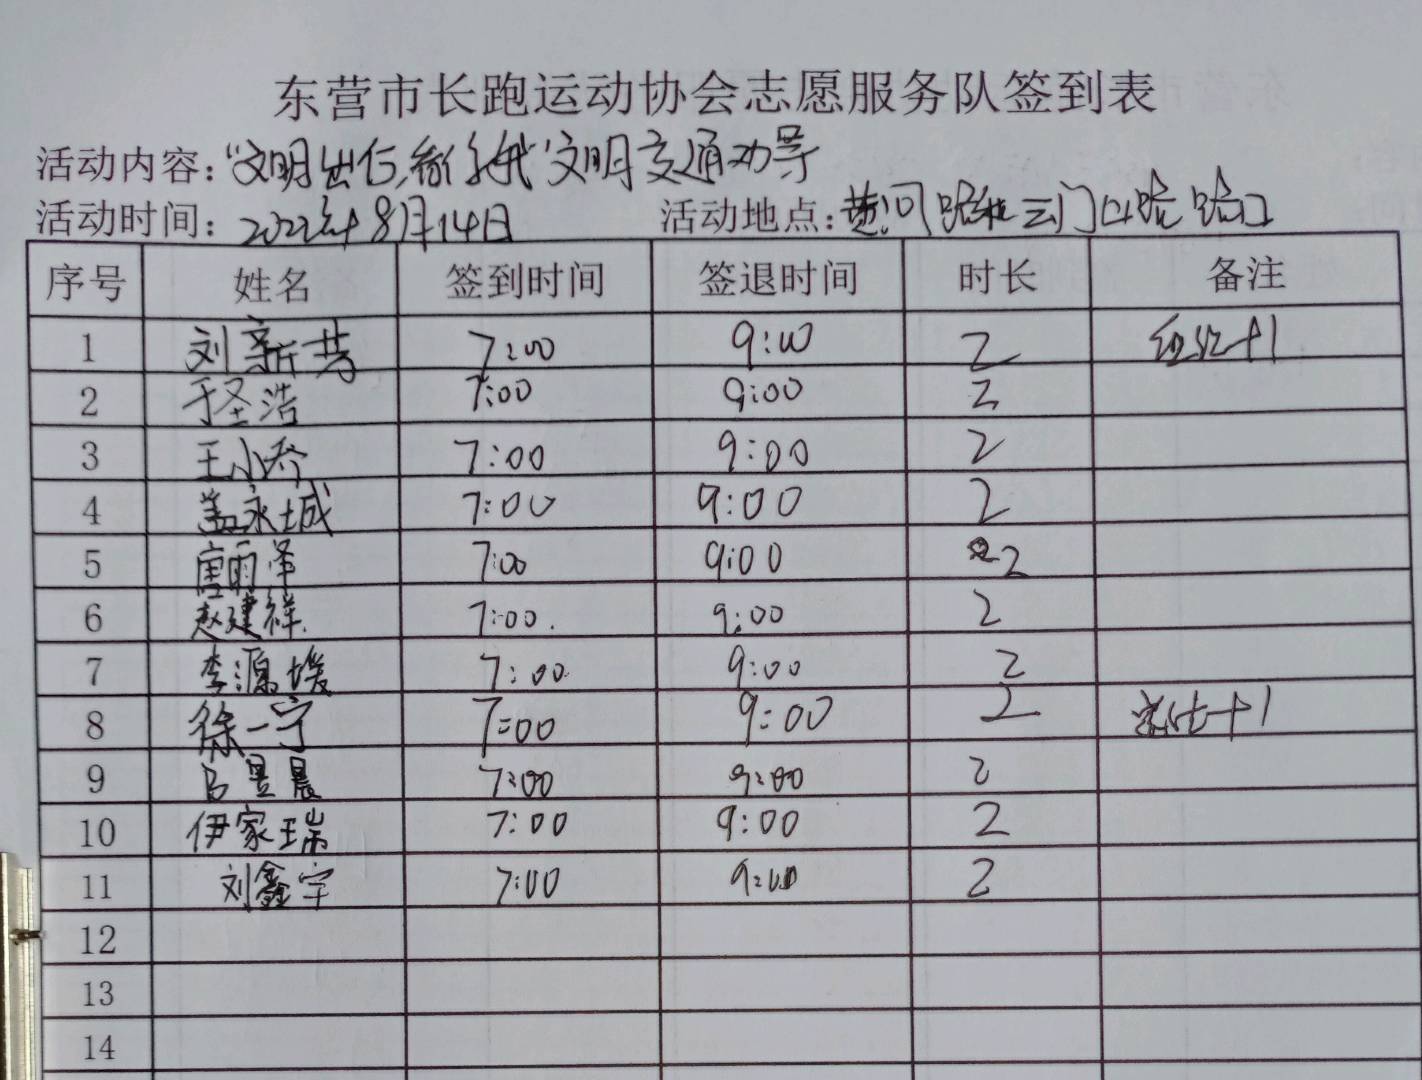 东营市长跑运动协会志愿服务队签到表
活动内容：“文明出行,有你我”文明交通劝导
活动时间：2022年8月14日 活动地点：楚河路和云门山路路口
序号 姓名 签到时间 签退时间 时长 备注
1 刘新芳 7:00 9:00 2 +1
2 于圣浩 7:00 9:00 2
3 王小乔 7:00 9:00 2
4 盖永城 7:00 9:00 2
5 唐雨泽 7:00 9:00 2
6 赵建祥 7:00 9:00 2
7 李源媛 7:00 9:00 2
8 徐一宁 7:00 9:00 2 +1
9 吕昱晨 7:00 9:00 2
10 伊家瑞 7:00 9:00 2
11 刘鑫宇 7:00 9:00 2
12
13
14